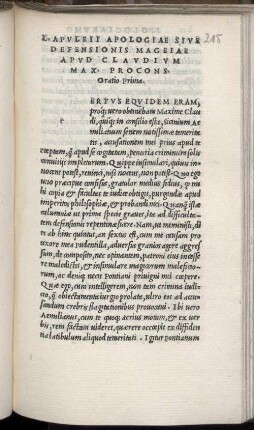 215
L. APVLEII APOLOGIAE SIVE
DEFENSIONIS MAGEIAE
APVD CLAVDIVM
MAX. PROCONS.
Oratio prima.
ERTVS EQVIDEM ERAM,
proq; uero obtinebam Maxime Clau
di, quiq; in consilio estis, Sicinium Ae
milianum senem notissimæ temerita
tis, accusationem mei prius apud te
cœptam, q̃ apud se cogitatam, penuria criminum solis
conuitijs impleturum. Quippe insimulari, quiuis in
nocens potest, reuinci, nisi nocens, non potest. Quo ego
uno præcipue confisus, gratulor medius fidius, q mi
hi copia, & facultas te iudice obtigit, purgandæ apud
imperitos philosophiæ, & probandi mei. Quanq̃ istæ
calumniæ ut prima specie graues, ita ad difficultatem
defensionis repentinæ fuere. Nam, ut meministis, dies
ab hinc quintus, an sextus est, cum me causam pro
uxore mea pudentilla, aduersus granios agere aggres
sum, de composito, nec opinantem, patroni eius incesse
re maledictis, & insimulare magicorum maleficio
rum, ac deniq; necis Pontiani priuigni mei cœpere.
Quæ ego, cum intelligerem, non tam crimina iudi
cio, q̃ obiectamenta iurgio prolata, ultro eos ad accu
sandum crebris flagitationibus prouocaui. Ibi uero
Aemilianus, cum te quoq; acrius motum, & ex uer
bis, rem factam uideret, quærere occœpit ex diffiden
tia latibulum aliquod temeritati. Igitur pontianum